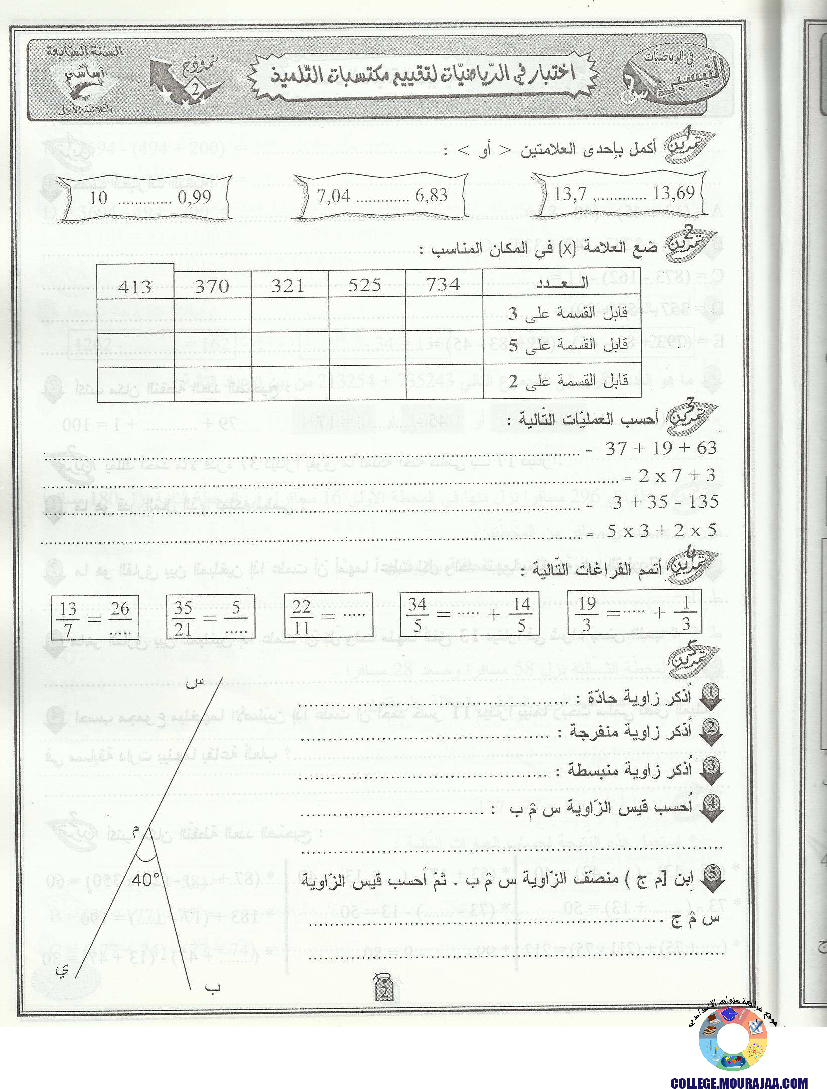 في الرياضيات
التيسير
اختبار في الرياضيات لتقييم مكتسبات التلميذ
نموذج
2
السنة السابعة
أساسي
تمرين 1
أكمل بإحدى العلامتين < أو > :
13,7 ............ 13,69
7,04 ............ 6,83
10 ............ 0,99
تمرين 2
ضع العلامة (x) في المكان المناسب :
العـدد 734 525 321 370 413
قابل القسمة على 3
قابل القسمة على 5
قابل القسمة على 2
تمرين 3
أحسب العمليّات التّالية :
37 + 19 + 63 =
2 x 7 + 3 =
3 + 35 - 135 =
5 x 3 + 2 x 5 =
تمرين 4
أتمم الفراغات التّالية :
13/7 = 26/.....
35/21 = 5/.....
22/11 = .....
34/5 = ..... + 14/5
19/3 = ..... + 1/3
تمرين 5
1 أذكر زاوية حادّة :
2 أذكر زاوية منفرجة :
3 أذكر زاوية منبسطة :
4 أحسب قيس الزّاوية س م̂ ب :
5 ابن [م ج ) منصّف الزّاوية س م̂ ب . ثمّ أحسب قيس الزّاوية
س م̂ ج
س
م
40°
ي
ب
COLLEGE.MOURAJAA.COM